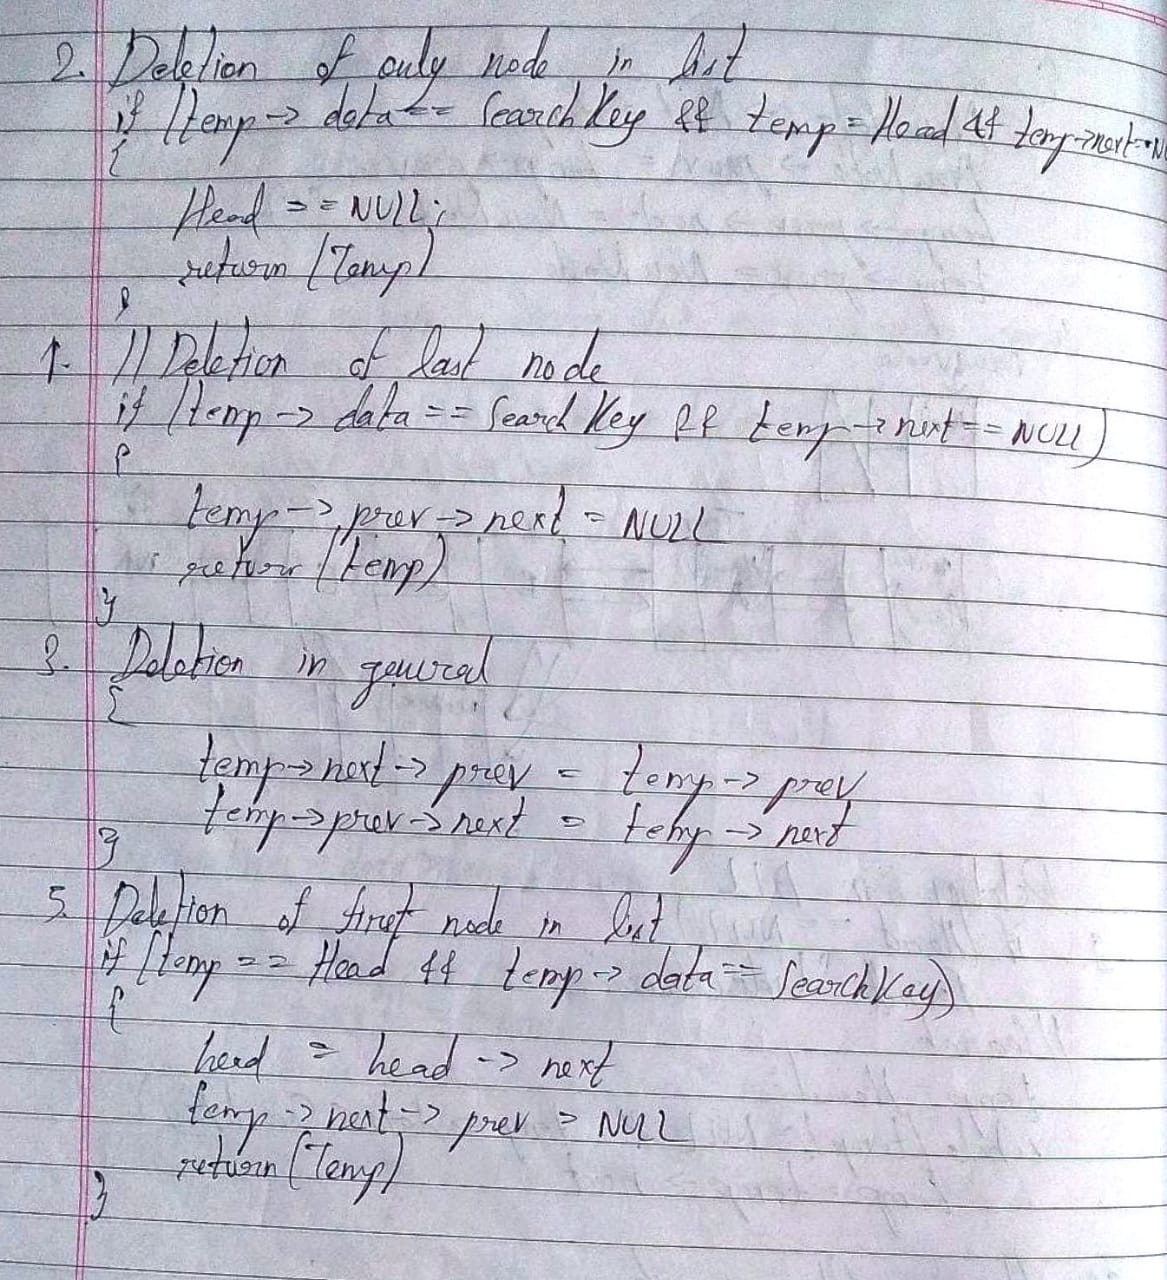 2. Deletion of only node in list
if (temp -> data == Search Key && temp = Head && temp->next == N
{
Head == NULL;
return (Temp)
}
1. // Deletion of last node
if (temp -> data == Search Key && temp -> next == NULL)
{
temp -> prev -> next = NULL
return (temp)
}
3. Deletion in general
{
temp -> next -> prev = temp -> prev
temp -> prev -> next = temp -> next
}
5. Deletion of first node in list
if (temp == Head && temp -> data == Search Key)
{
head = head -> next
temp -> next -> prev = NULL
return (Temp)
}